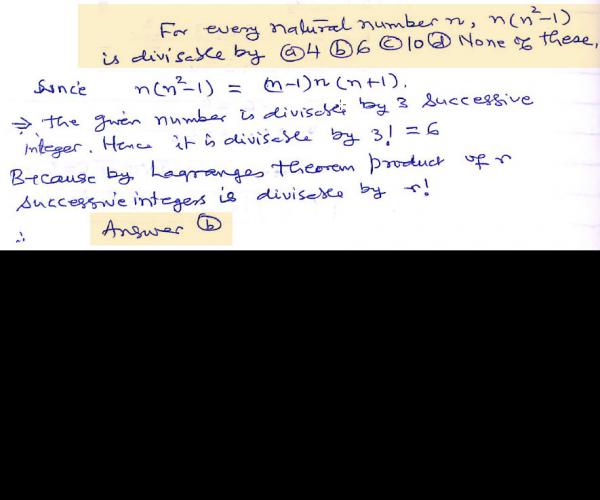 For every natural number n, n(n²-1)
is divisable by ⓐ4 ⓑ6 ⓒ10 ⓓ None of these,
Since n(n²-1) = (n-1)n(n+1).
⇒ the given number is divisable by 3 successive
integer. Hence it is divisable by 3! = 6
Because by Lagranges theorem product of r
successive integers is divisable by r!
∴ Answer ⓑ